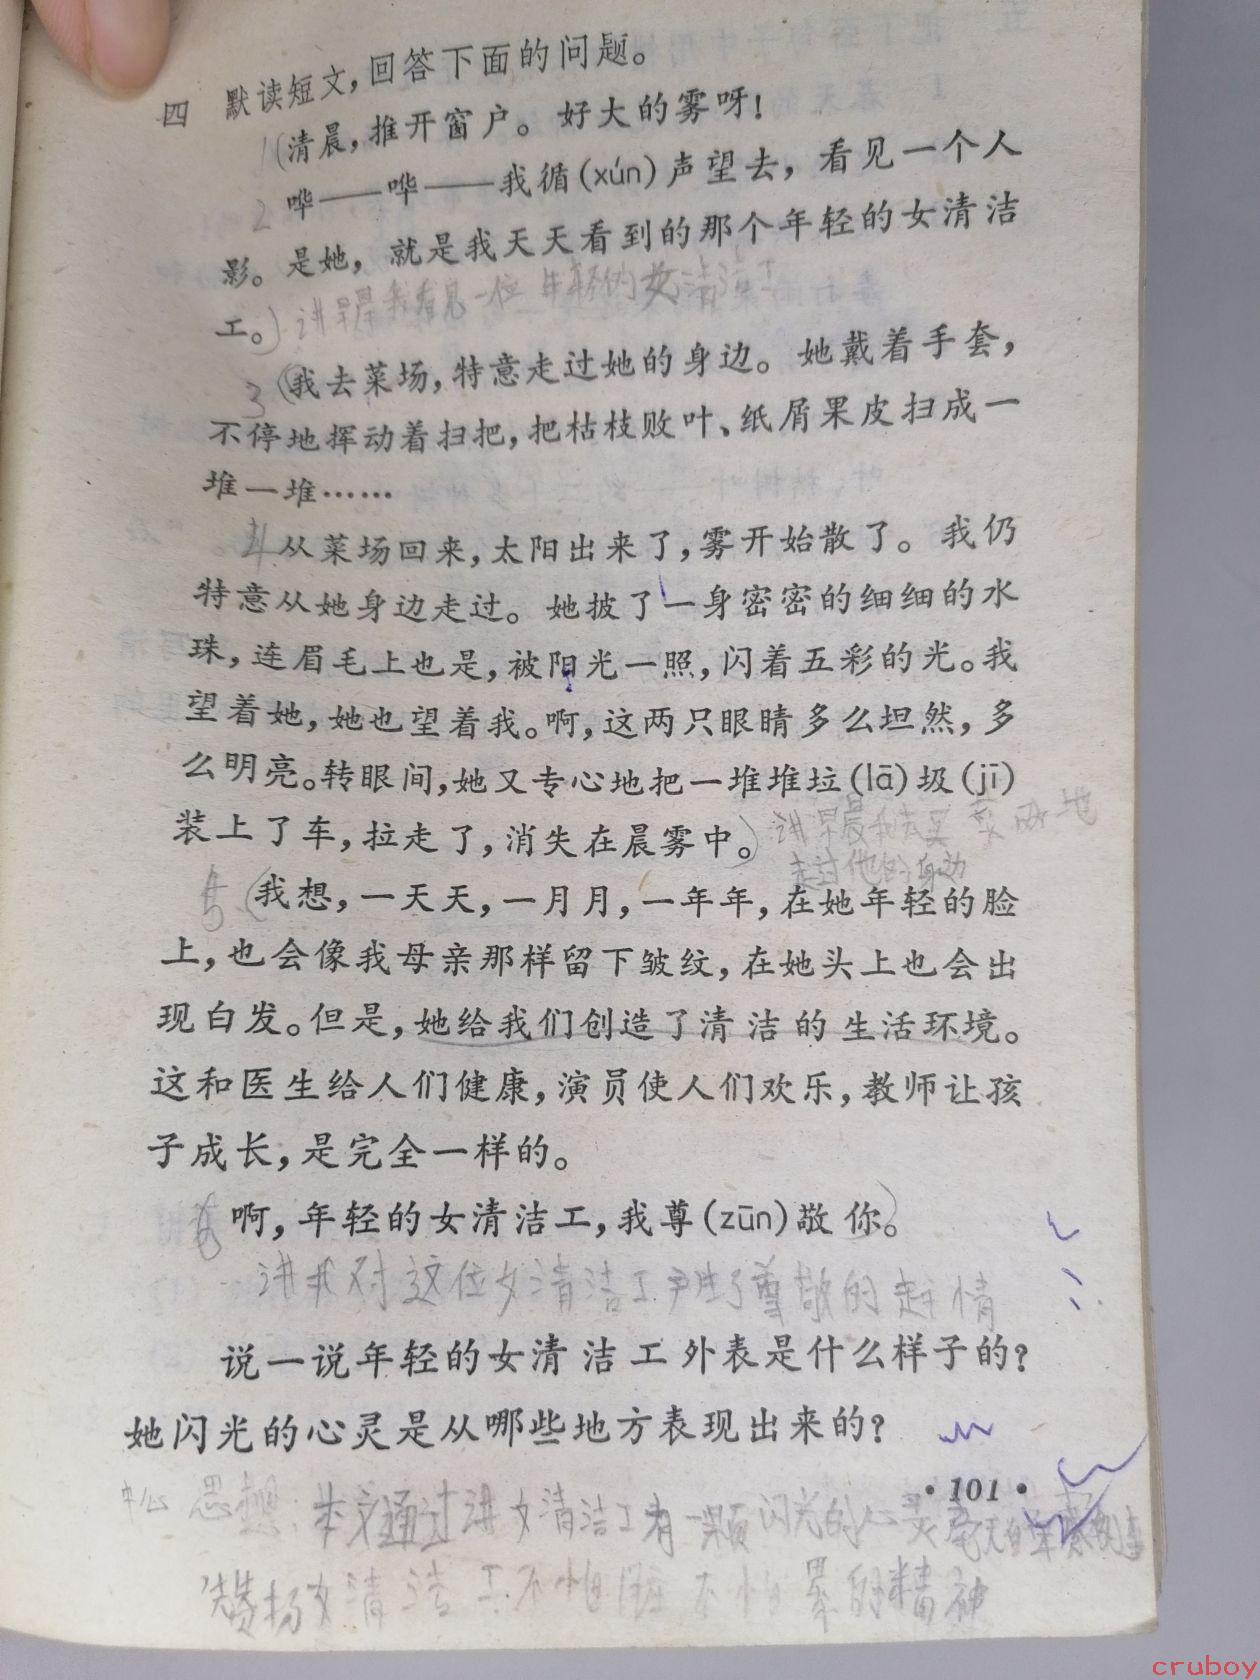 四 默读短文，回答下面的问题。
1(清晨，推开窗户。好大的雾呀！
2 哗——哗——我循(xún)声望去，看见一个人
影。是她，就是我天天看到的那个年轻的女清洁
工。)讲早晨我看见一位年轻的女清洁工
3(我去菜场，特意走过她的身边。她戴着手套，
不停地挥动着扫把，把枯枝败叶、纸屑果皮扫成一
堆一堆……
4 从菜场回来，太阳出来了，雾开始散了。我仍
特意从她身边走过。她披了一身密密的细细的水
珠，连眉毛上也是，被阳光一照，闪着五彩的光。我
望着她，她也望着我。啊，这两只眼睛多么坦然，多
么明亮。转眼间，她又专心地把一堆堆垃(lā)圾(jī)
装上了车，拉走了，消失在晨雾中。)讲早晨我去买菜两次地
走过他的身边
5(我想，一天天，一月月，一年年，在她年轻的脸
上，也会像我母亲那样留下皱纹，在她头上也会出
现白发。但是，她给我们创造了清洁的生活环境。
这和医生给人们健康，演员使人们欢乐，教师让孩
子成长，是完全一样的。
6 啊，年轻的女清洁工，我尊(zūn)敬你。)
讲我对这位女清洁工产生了尊敬的感情
说一说年轻的女清洁工外表是什么样子的？
她闪光的心灵是从哪些地方表现出来的？
·101·
中心思想：本文通过讲女清洁工有一颗闪光的心灵
赞扬女清洁工不怕脏不怕累的精神
cruboy